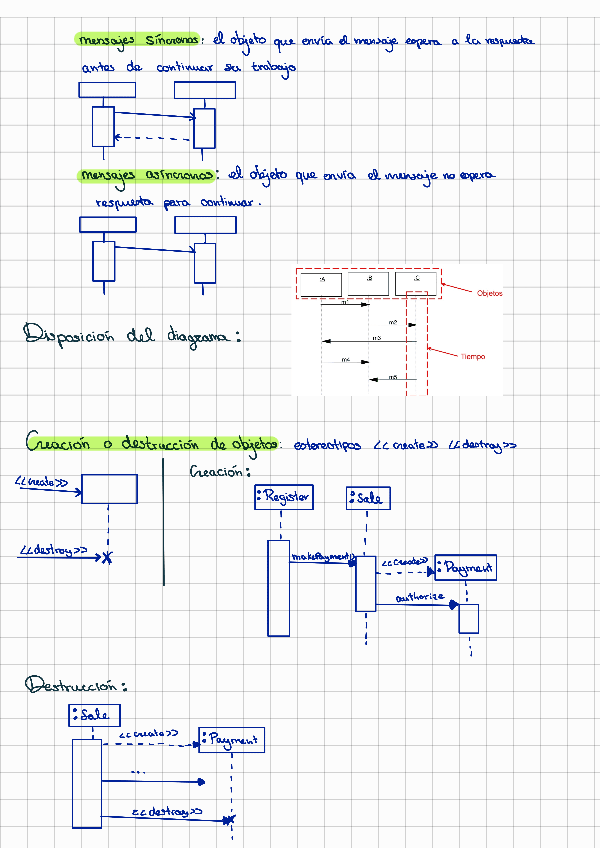 mensajes síncronos: el objeto que envía el mensaje espera a la respuesta
antes de continuar su trabajo
mensajes asíncronos: el objeto que envía el mensaje no espera
respuesta para continuar.
:A
:B
:C
Objetos
m1
m2
m3
m4
m5
Tiempo
Disposición del diagrama:
Creación o destrucción de objetos: estereotipos <<create>> <<destroy>>
<<create>>
<<destroy>>
Creación:
:Register
:Sale
makePayment()
<<create>>
:Payment
authorize
Destrucción:
:Sale
<<create>>
:Payment
...
<<destroy>>